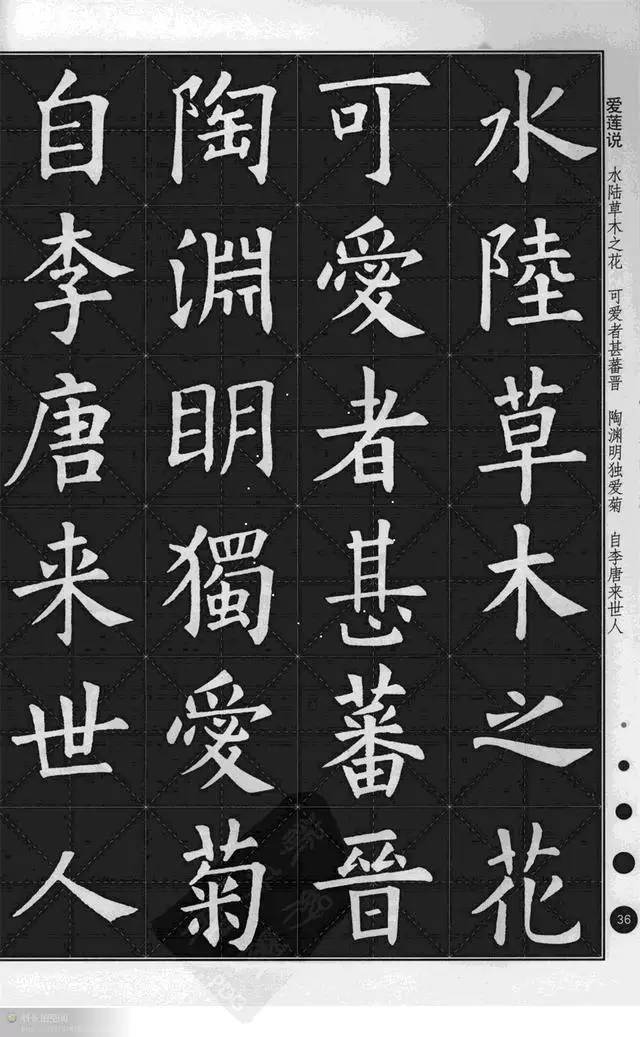 水陸草木之花
可愛者甚蕃晉
陶淵明獨愛菊
自李唐来世人
爱莲说 水陆草木之花 可爱者甚蕃晋 陶渊明独爱菊 自李唐来世人
36